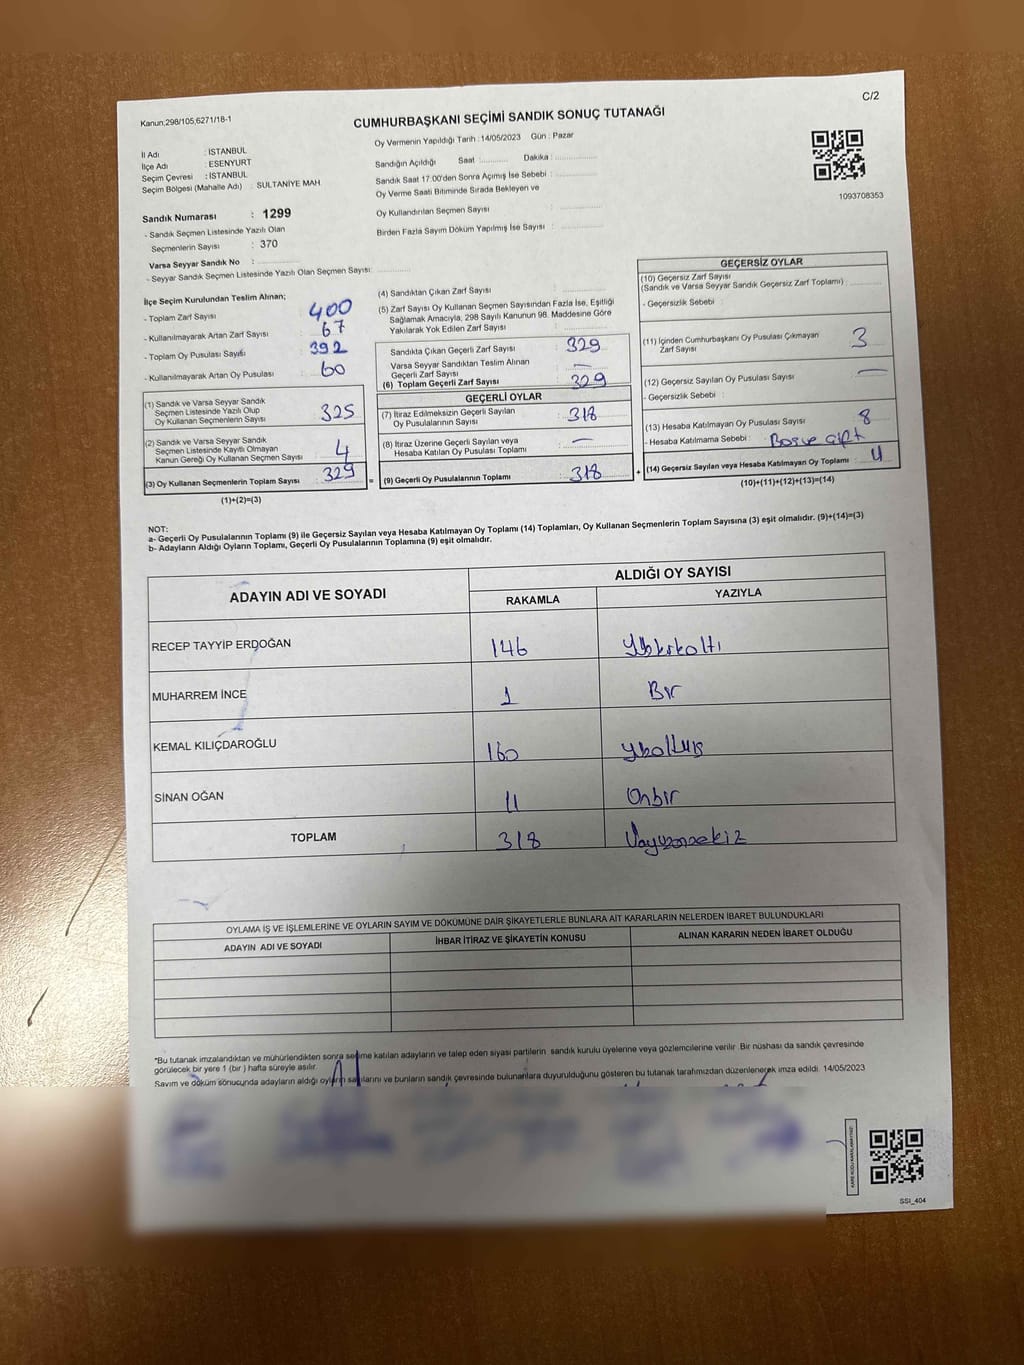 C/2
Kanun,298/105,6271/18-1
CUMHURBAŞKANI SEÇİMİ SANDIK SONUÇ TUTANAĞI
Oy Vermenin Yapıldığı Tarih : 14/05/2023 Gün : Pazar
İl Adı : İSTANBUL
İlçe Adı : ESENYURT
Seçim Çevresi : İSTANBUL
Seçim Bölgesi (Mahalle Adı) : SULTANİYE MAH
Sandığın Açıldığı Saat :.......... Dakika :...............
Sandık Saat 17:00'den Sonra Açımış İse Sebebi : ...............
Oy Verme Saati Bitiminde Sırada Bekleyen ve
Oy Kullandırılan Seçmen Sayısı : ...............
Birden Fazla Sayım Döküm Yapılmış İse Sayısı : ...............
1093708353
Sandık Numarası : 1299
- Sandık Seçmen Listesinde Yazılı Olan
Seçmenlerin Sayısı : 370
Varsa Seyyar Sandık No : ...............
- Seyyar Sandık Seçmen Listesinde Yazılı Olan Seçmen Sayısı: ............
İlçe Seçim Kurulundan Teslim Alınan;
- Toplam Zarf Sayısı : 400
- Kullanılmayarak Artan Zarf Sayısı : 67
- Toplam Oy Pusulası Sayısı : 392
- Kullanılmayarak Artan Oy Pusulası : 60
(1) Sandık ve Varsa Seyyar Sandık
Seçmen Listesinde Yazılı Olup
Oy Kullanan Seçmenlerin Sayısı : 325
(2) Sandık ve Varsa Seyyar Sandık
Seçmen Listesinde Kayıtlı Olmayan
Kanun Gereği Oy Kullanan Seçmen Sayısı : 4
(3) Oy Kullanan Seçmenlerin Toplam Sayısı : 329
(1)+(2)=(3)
(4) Sandıktan Çıkan Zarf Sayısı : ...............
(5) Zarf Sayısı Oy Kullanan Seçmen Sayısından Fazla İse, Eşitliği
Sağlamak Amacıyla, 298 Sayılı Kanunun 98. Maddesine Göre
Yakılarak Yok Edilen Zarf Sayısı : ...............
Sandıkta Çıkan Geçerli Zarf Sayısı : 329
Varsa Seyyar Sandıktan Teslim Alınan
Geçerli Zarf Sayısı : —
(6) Toplam Geçerli Zarf Sayısı : 329
GEÇERLİ OYLAR
(7) İtiraz Edilmeksizin Geçerli Sayılan
Oy Pusulalarının Sayısı : 318
(8) İtiraz Üzerine Geçerli Sayılan veya
Hesaba Katılan Oy Pusulası Toplamı : —
= (9) Geçerli Oy Pusulalarının Toplamı : 318
GEÇERSİZ OYLAR
(10) Geçersiz Zarf Sayısı
(Sandık ve Varsa Seyyar Sandık Geçersiz Zarf Toplamı) : ............
- Geçersizlik Sebebi :
(11) İçinden Cumhurbaşkanı Oy Pusulası Çıkmayan
Zarf Sayısı : 3
(12) Geçersiz Sayılan Oy Pusulası Sayısı : —
- Geçersizlik Sebebi :
(13) Hesaba Katılmayan Oy Pusulası Sayısı : 8
- Hesaba Katılmama Sebebi : Boş ve çift
+ (14) Geçersiz Sayılan veya Hesaba Katılmayan Oy Toplamı : 11
(10)+(11)+(12)+(13)=(14)
NOT:
a- Geçerli Oy Pusulalarının Toplamı (9) ile Geçersiz Sayılan veya Hesaba Katılmayan Oy Toplamı (14) Toplamları, Oy Kullanan Seçmenlerin Toplam Sayısına (3) eşit olmalıdır. (9)+(14)=(3)
b- Adayların Aldığı Oyların Toplamı, Geçerli Oy Pusulalarının Toplamına (9) eşit olmalıdır.
ADAYIN ADI VE SOYADI
ALDIĞI OY SAYISI
RAKAMLA YAZIYLA
RECEP TAYYİP ERDOĞAN 146 Yüzkırkaltı
MUHARREM İNCE 1 Bir
KEMAL KILIÇDAROĞLU 160 yüzaltmış
SİNAN OĞAN 11 Onbir
TOPLAM 318 Üçyüzonsekiz
OYLAMA İŞ VE İŞLEMLERİNE VE OYLARIN SAYIM VE DÖKÜMÜNE DAİR ŞİKAYETLERLE BUNLARA AİT KARARLARIN NELERDEN İBARET BULUNDUKLARI
ADAYIN ADI VE SOYADI İHBAR İTİRAZ VE ŞİKAYETİN KONUSU ALINAN KARARIN NEDEN İBARET OLDUĞU
*Bu tutanak imzalandıktan ve mühürlendikten sonra seçime katılan adayların ve talep eden siyasi partilerin sandık kurulu üyelerine veya gözlemcilerine verilir .Bir nüshası da sandık çevresinde
görülecek bir yere 1 (bir ) hafta süreyle asılır.
Sayım ve döküm sonucunda adayların aldığı oyların sayılarını ve bunların sandık çevresinde bulunanlara duyurulduğunu gösteren bu tutanak tarafımızdan düzenlenerek imza edildi. 14/05/2023
SSI_404